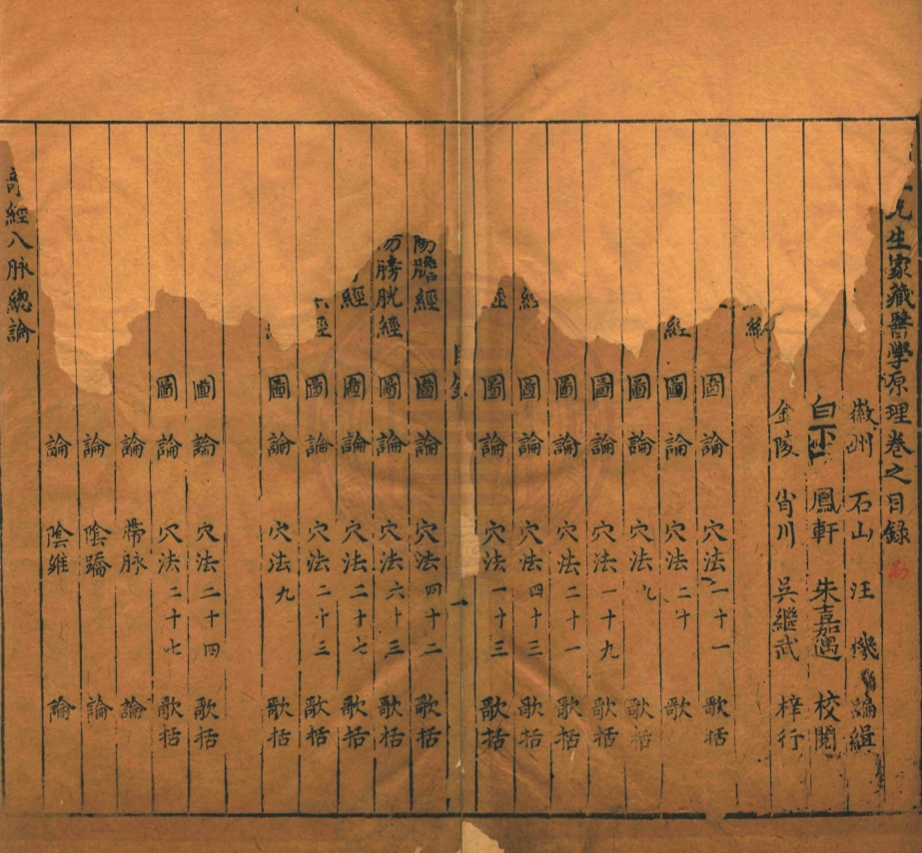 先生家藏醫學原理卷之目錄
徽州 石山 汪 機 編緝
白下 鳳軒 朱嘉遇 校閱
金陵 肖川 吳繼武 梓行
圖 論 穴法二十一 歌括
經 圖 論 穴法二十 歌
圖 論 穴法九 歌括
圖 論 穴法一十九 歌括
圖 論 穴法二十一 歌括
圖 論 穴法四十三 歌括
圖 論 穴法一十三 歌括
目錄 一
膽經 圖 論 穴法四十二 歌括
膀胱經 圖 論 穴法六十三 歌括
經 圖 論 穴法二十七 歌括
經 圖 論 穴法二十三 歌括
圖 論 穴法九 歌括
圖 論 穴法二十四 歌括
圖 論 穴法二十七 歌括
論 帶脉 論
論 陰蹻 論
論 陰維 論
經八脉總論